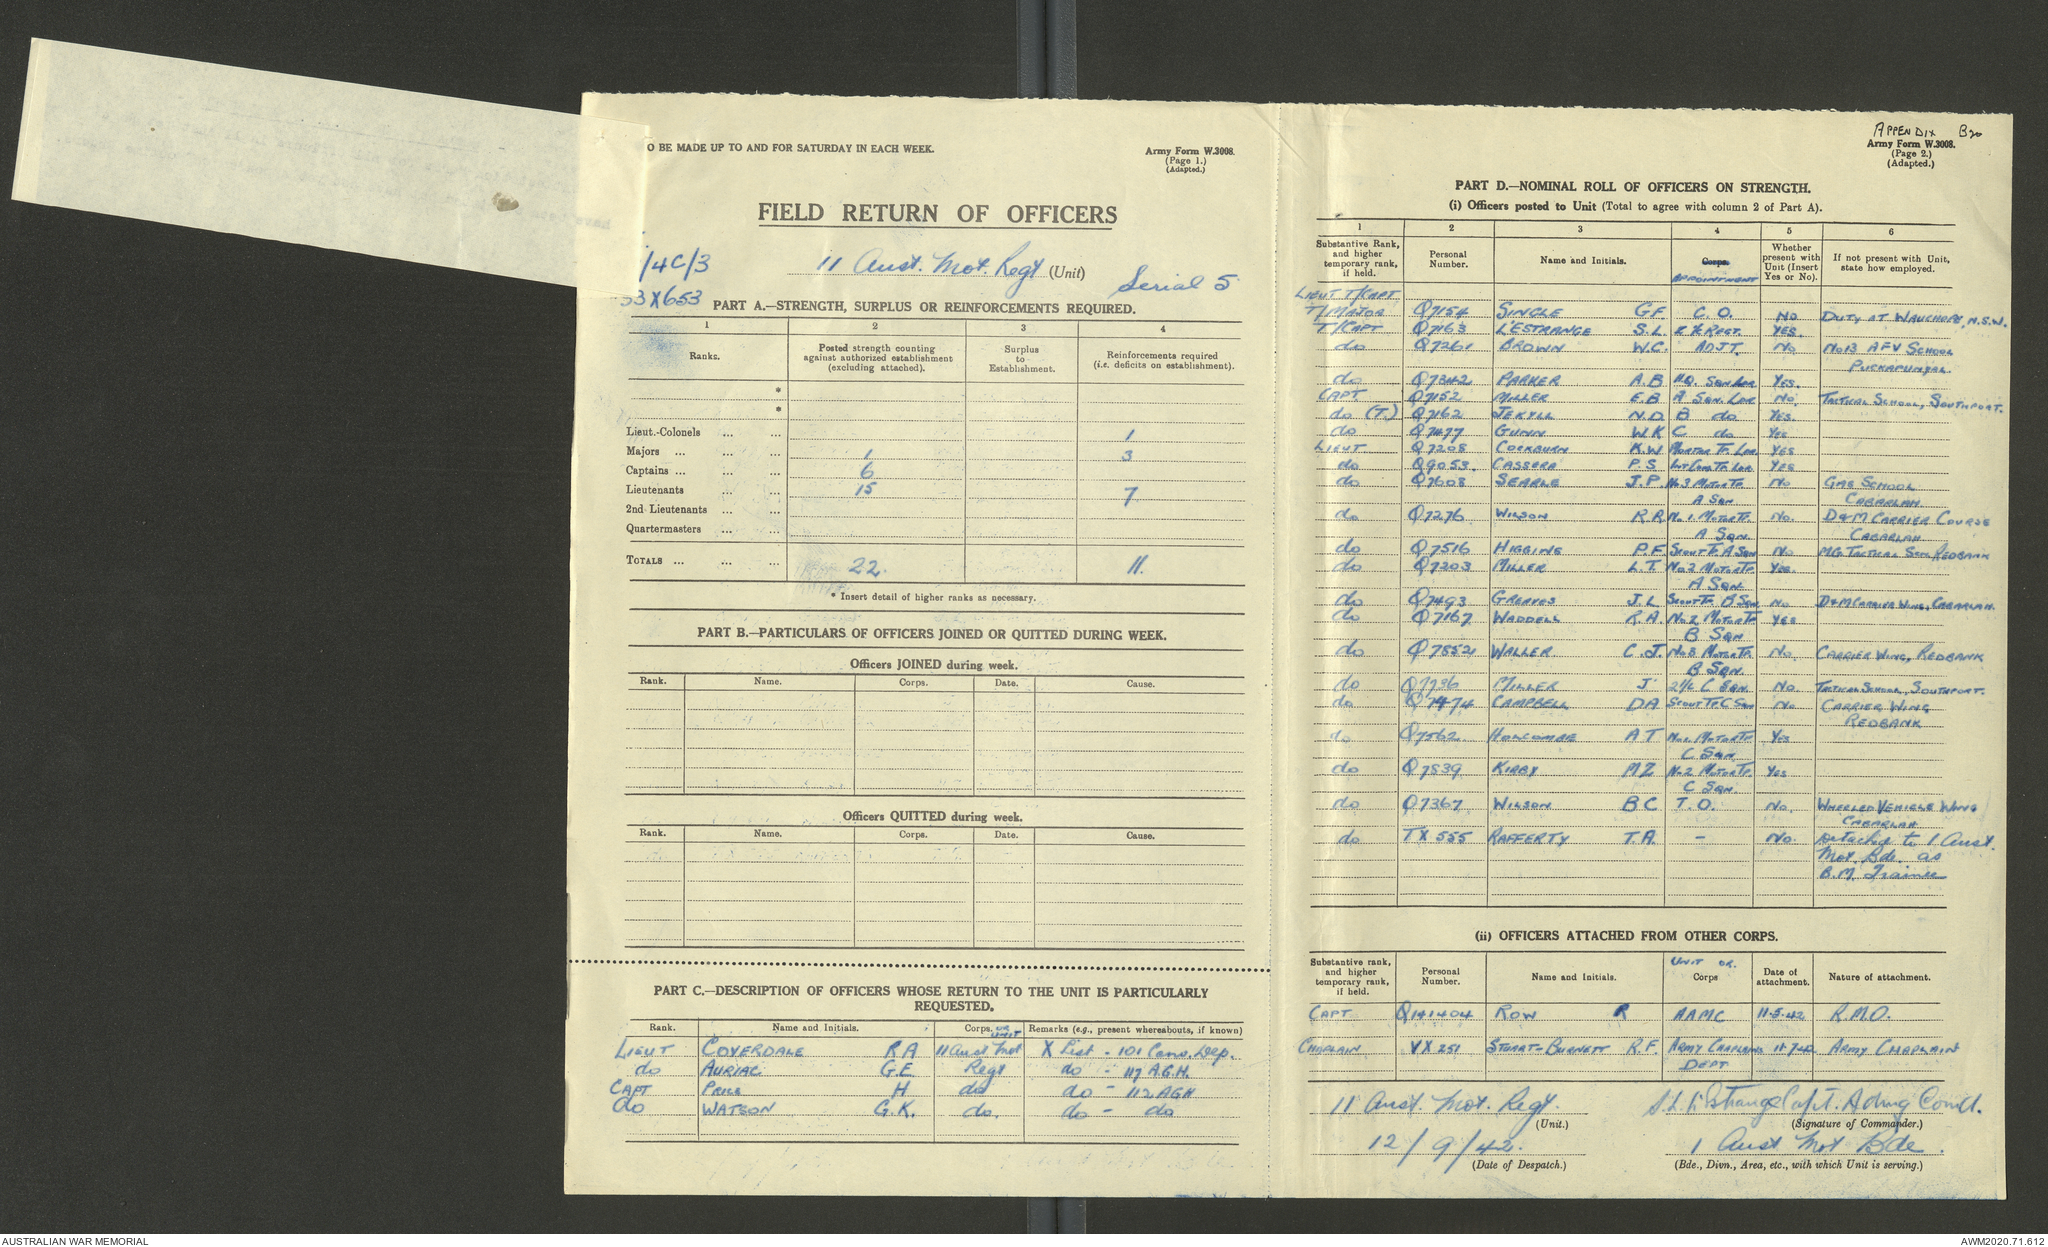 TO BE MADE UP TO AND FOR SATURDAY IN EACH WEEK.
Army Form W.3008.
(Page 1.)
(Adapted.)
FIELD RETURN OF OFFICERS
/4C/3
11 Aust. Mot. Regt (Unit)
Serial 5
53X653
PART A.—STRENGTH, SURPLUS OR REINFORCEMENTS REQUIRED.
1 2 3 4
Ranks. Posted strength counting against authorized establishment (excluding attached). Surplus to Establishment. Reinforcements required (i.e. deficits on establishment).
*
*
Lieut.-Colonels ... ... 1
Majors ... ... ... 1 3
Captains ... ... ... 6
Lieutenants ... ... 15 7
2nd Lieutenants ... ...
Quartermasters ... ...
TOTALS ... ... ... 22. 11.
* Insert detail of higher ranks as necessary.
PART B.—PARTICULARS OF OFFICERS JOINED OR QUITTED DURING WEEK.
Officers JOINED during week.
Rank. Name. Corps. Date. Cause.
Officers QUITTED during week.
Rank. Name. Corps. Date. Cause.
PART C.—DESCRIPTION OF OFFICERS WHOSE RETURN TO THE UNIT IS PARTICULARLY
REQUESTED.
Rank. Name and Initials. Corps. OR UNIT Remarks (e.g., present whereabouts, if known)
LIEUT COVERDALE R A 11 Aust Mot X List - 101 Conv. Dep.
do AURIAC G.E. Regt do - 117 A.G.H.
CAPT PRICE H do do - 112 AGH
do WATSON G.K. do. do - do
APPENDIX B20
Army Form W.3008.
(Page 2.)
(Adapted.)
PART D.—NOMINAL ROLL OF OFFICERS ON STRENGTH.
(i) Officers posted to Unit (Total to agree with column 2 of Part A).
1 2 3 4 5 6
Substantive Rank, and higher temporary rank, if held. Personal Number. Name and Initials. Corps. APPOINTMENT Whether present with Unit (Insert Yes or No). If not present with Unit, state how employed.
LIEUT T/CAPT
T/MAJOR Q7154 SINGLE G F C.O. No DUTY AT WAUCHOPE, N.S.W.
T/CAPT Q7163 L'ESTRANGE S.L. 2 I/c REGT. YES
do Q7261 BROWN W.C. ADJT. No No13 AFV SCHOOL
PUCKAPUNYAL
do Q7342 PARKER A.B HQ. SQN LDR YES.
CAPT Q7152 MILLER E B A SQN. LDR No. TACTICAL SCHOOL, SOUTHPORT.
do (T.) Q7162 JEKYLL N.D B do YES
do Q7477 GUNN W K C do YES
LIEUT Q7208 COCKBURN K.W MORTAR TP. LDR YES
do Q9053 CASSERA P.S INTCOM TP. LDR YES
do Q7608 SEARLE J.P. No 3 MOTOR TP. No GAS SCHOOL
A SQN CABARLAH
do Q7276 WILSON R R No. 1 MOTOR TP. No. D & M CARRIER COURSE
A SQN. CABARLAH
do Q7516 HIGGINS P.F. SCOUT TP. A SQN No MG TACTICAL SCH. REDBANK
do Q7203 MILLER L.T. No 2 MOTOR TP. YES.
A SQN.
do Q7493 GREAVES J.L SCOUT TP. B SQN No D & M CARRIER WING, CABARLAH.
do Q7167 WADDELL R.A. No 2 MOTOR TP. YES
B SQN
do Q7852 WALLER C.J. No 3 MOTOR TP. No. CARRIER WING, REDBANK
B SQN.
do Q7736 MILLER J. 2 I/c C SQN. No. TACTICAL SCHOOL, SOUTHPORT.
do Q7474 CAMPBELL D A SCOUT TP. C SQN No CARRIER WING
REDBANK
do Q7562 HOLCOMBE A T No. 1 MOTOR TP. YES
C SQN.
do Q7839 KIRBY M Z No. 2 MOTOR TP. YES
C SQN.
do Q7367 WILSON B C T.O. No. WHEELED VEHICLE WING
CABARLAH
do TX 555 RAFFERTY T.A. - No. Detached to 1 Aust.
Mot. Bde. as
B.M. Trainee
(ii) OFFICERS ATTACHED FROM OTHER CORPS.
Substantive rank, and higher temporary rank, if held. Personal Number. Name and Initials. UNIT OR. Corps Date of attachment. Nature of attachment.
CAPT Q141404 ROW R AAMC 11-5-42 R.M.O.
CHAPLAIN VX 251 STUART-BURNETT R.F. ARMY CHAPLAINS 11-7-42 ARMY CHAPLAIN
DEPT
11 Aust. Mot. Regt. S.L. L'Estrange Capt. Adming Comd.
(Unit.) (Signature of Commander.)
12/9/42. 1 Aust Mot Bde.
(Date of Despatch.) (Bde., Divn., Area, etc., with which Unit is serving.)
AUSTRALIAN WAR MEMORIAL
AWM2020.71.612